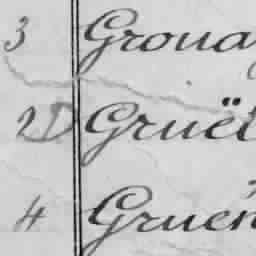 3 Groua
2 Gruël
4 Gruen